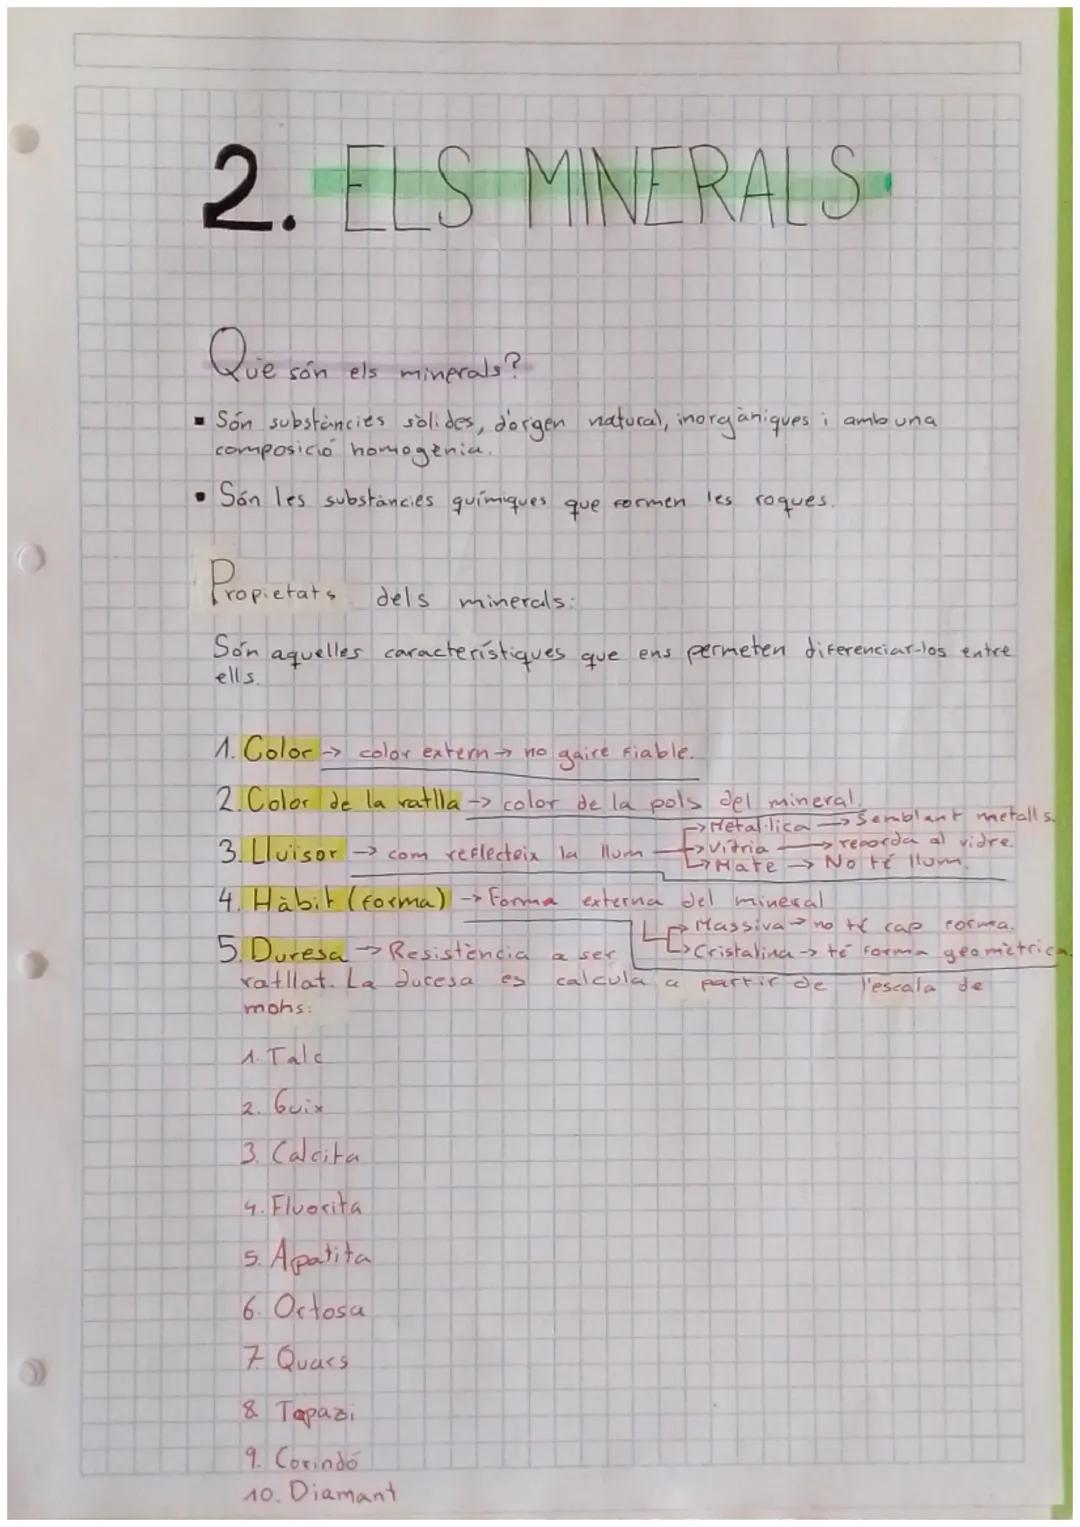 2. ELS MINERALS
Què són els minerals?
Són substàncies sòlides, d'orgen natural, inorgàniques i amb una
composició homogènia.
Són les substàncies químiques que formen les roques.
Propietats dels minerals:
Són aquelles característiques que ens permeten diferenciar-los entre
ells.
1. Color → color extern → no gaire fiable.
2. Color de la ratlla → color de la pols del mineral.
3. Lluïsor → com reflecteix la llum
→ Metal·lica → Semblant metalls.
→ Vitria → recorda al vidre.
→ Mate → No té llum.
4. Hàbit (forma) → Forma externa del mineral
→ Massiva → no té cap forma.
→ Cristalina → té forma geomètrica.
5. Duresa → Resistència a ser
ratllat. La duresa es calcula a partir de l'escala de
mohs:
1. Talc
2. Guix
3. Calcita
4. Fluorita
5. Apatita
6. Octosa
7. Quars
8. Topazi
9. Corindó
10. Diamant